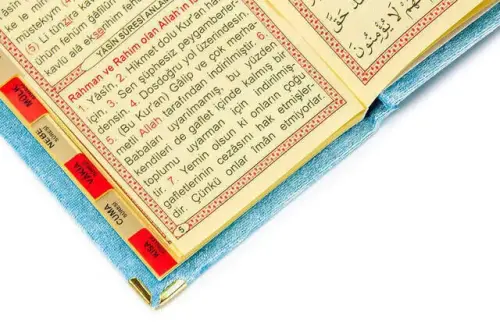 (5) Li
fehüm
YÂSÎN SÛRESİ ANLA
Rahman ve Rahim olan Allah'ın
Yâsîn. 2. Hikmet dolu Kur'an
için, 3. Sen şüphesiz peygamberler-
densin. 4. Dosdoğru yol üzerindesin.
5. (Bu Kur'an) Galip ve çok merha-
metli Allah tarafından indirilmiştir. 6.
Babaları uyarılmamış, bu yüzden
kendileri de gaflet içinde kalmış bir
toplumu uyarman için indirilmiş-
tir. 7. Yemin olsun ki onların çoğu
gafletlerinin cezasını hak etmişler-
dir. Çünkü onlar îmân etmiyorlar.
5
حَقَّ
لَا يُؤْمِنُونَ
MÜLK
SÛRESİ
NEBE
SÛRESİ
VAKIA
SÛRESİ
CUMA
SÛRESİ
KISA